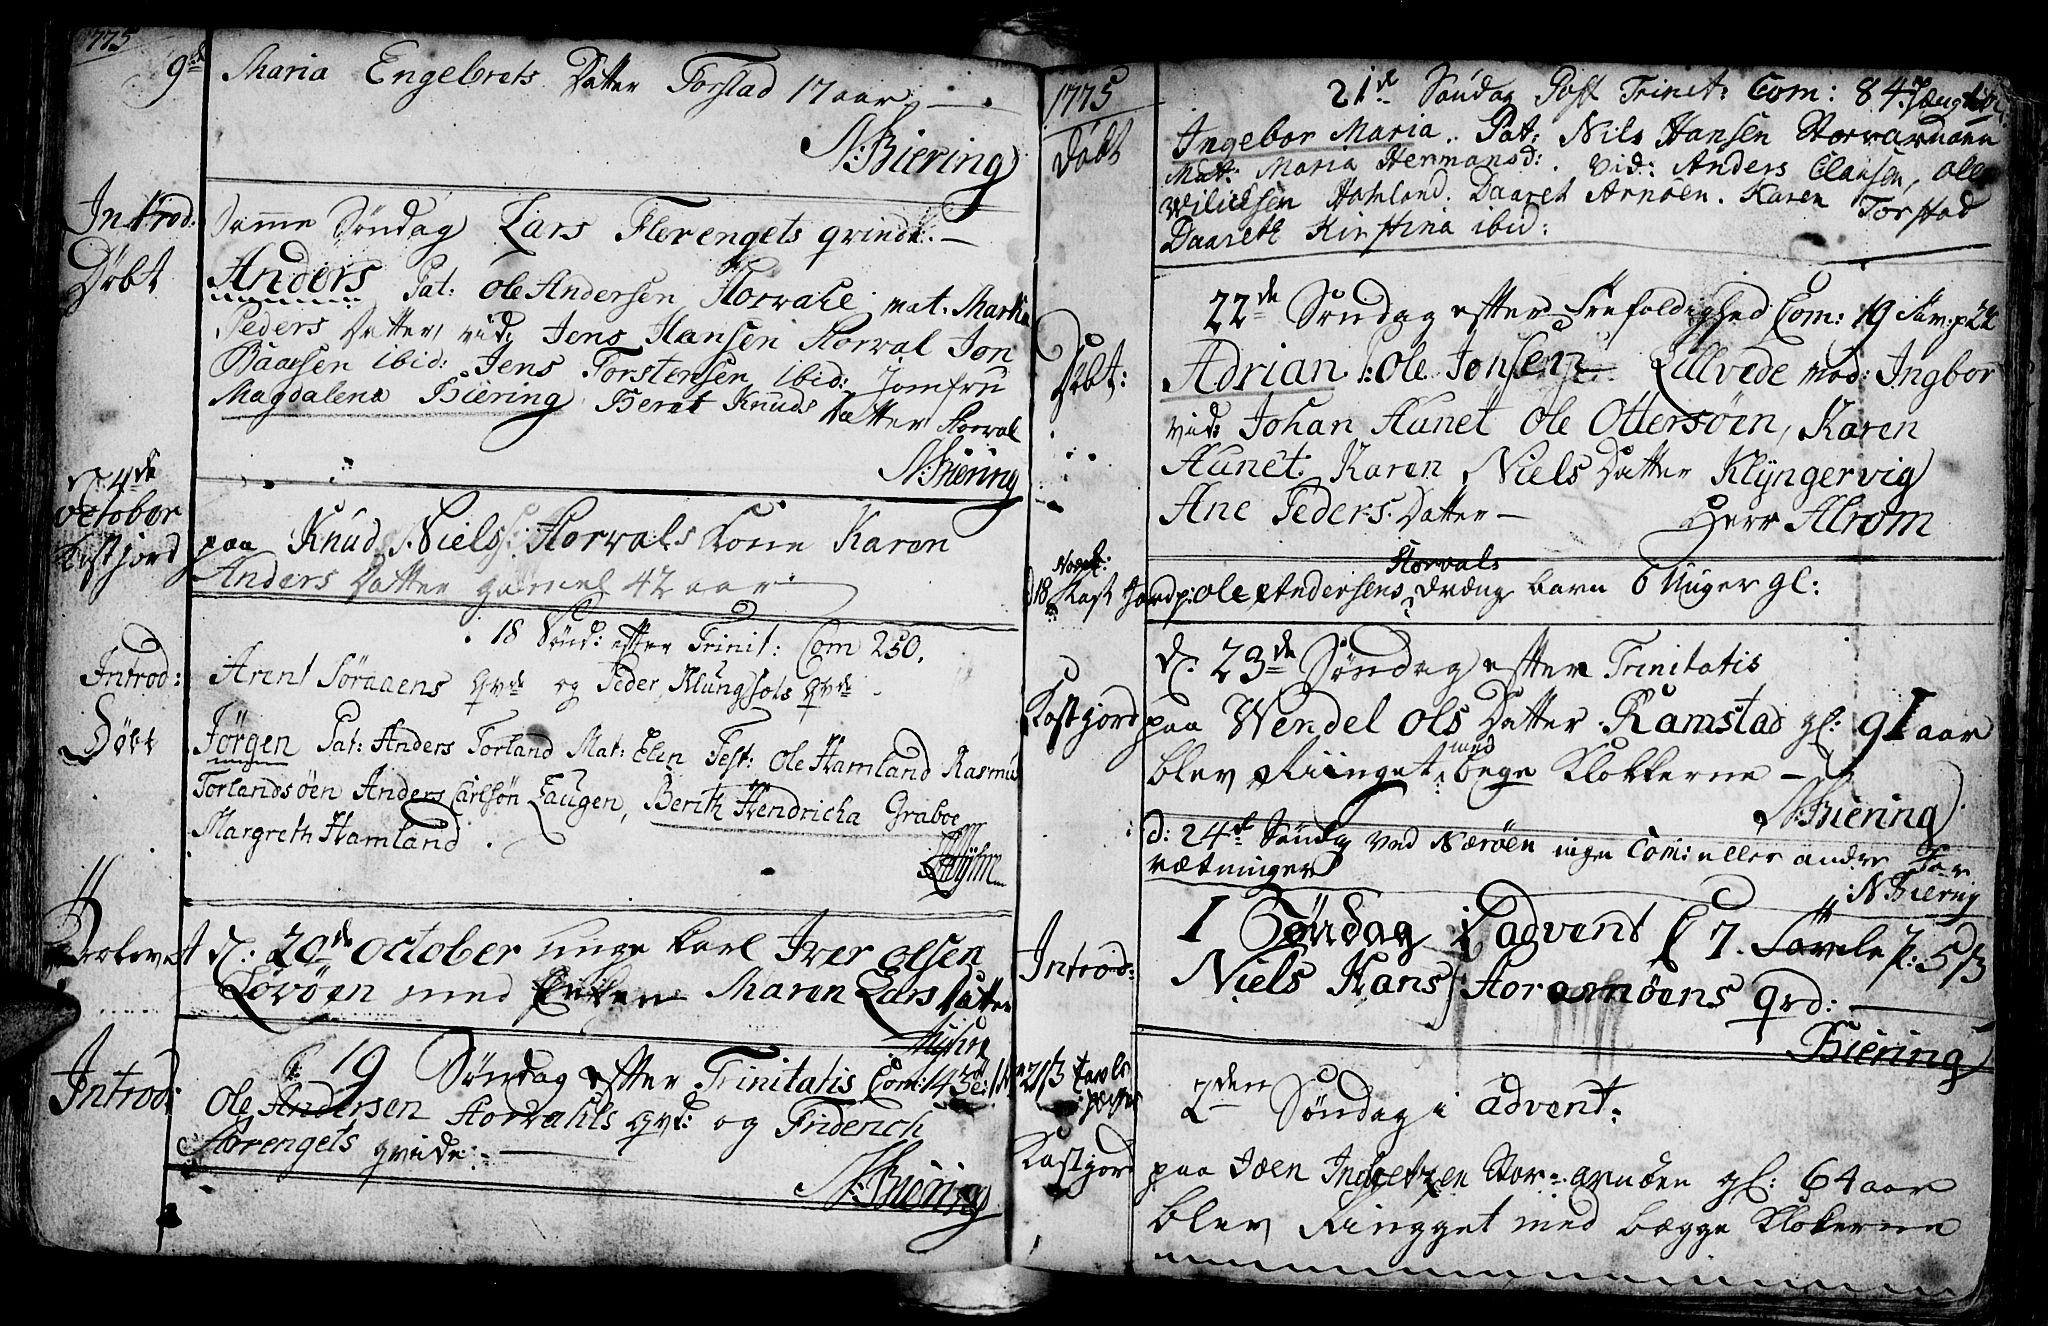 1775
9de Maria Engelbrets Datter Torstad 17 aar
N: Biering
Introd: Samme Søndag Lars Flerengets qvinde.
Døbt Anders Pat: Ole Andersen Horvale mat. Martha
Peders Datter, vid: Jens Hansen Horval Jon
ibid: Jens Torstensen ibid: Jomfru
Magdalena Biering Beret Knuds Datter Horval
N: Biering
d. 4de
October
Kastjord paa Knud Niels: Horvals Kone Karen
Anders Datter gammel 42 aar
18 Sønd: efter Trinit: Com 250.
Introd: Arent Søraaens qvd og Peder Klungsols qvd
Døbt Jørgen Pat: Anders Torland Mat: Elen Test: Ole Hamland Rasmus
Torlandsøen Anders Carlsøn Laugen, Berith Hendricha Graboe
Margreth Hamland.
d. 20de October unge Karl Iver Olsen
Lovøen med Maren Lars Datter
19 Søndag efter Trinitatis Com: 143
Introd: Ole Andersen Horvahls qvd: og Friderich
Horengets qvinde
N: Biering
1775
21de Søndag Post Trinit: Com: 84
Døbt Ingebor Maria. Pat: Nils Hansen
Mat: Maria Hermansd: Vid: Anders Clausen, Ole
Wilicksen Hamland. Daaret Arnøen. Karen Torstad
Daareth Kirstina ibid:
22de Søndag efter Trefoldighed Com: 19
Døbt: Adrian Ole Jonsen Lillvede mod: Ingbor
vid: Johan Aunet Ole Ottersøen, Karen
Aunet. Karen Niels Datter Klyngervig
Ane Peders Datter Herr Alrom
Novb:
Horvals
d 18 Kast jord p: Ole Andersens dreng barn 6 Uger gl:
d. 23de Søndag efter Trinitatis
Kastjord paa Wendel Ols Datter Ramstad gl: 91 aar
med
blev Ringet bege Klokkerne
N: Biering
d: 24de Søndag ved Nærøen ingen Com: eller andre For
rætninger
N Biering
1 Søndag i advent
Introd: Niels Hans Horsmøens qvd:
Biering
2den Søndag i advent:
Kastjord paa Joen gl: 64 aar
blev Ringget med begge Klokerne